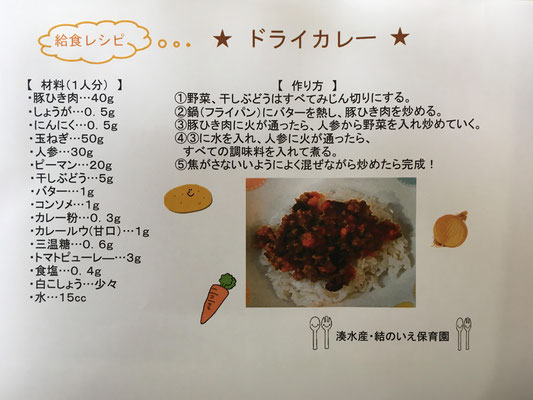 給食レシピ
★ ドライカレー ★
【 材料(1人分) 】
・豚ひき肉…40g
・しょうが…0.5g
・にんにく…0.5g
・玉ねぎ…50g
・人参…30g
・ピーマン…20g
・干しぶどう…5g
・バター…1g
・コンソメ…1g
・カレー粉…0.3g
・カレールウ(甘口)…1g
・三温糖…0.6g
・トマトピューレ―…3g
・食塩…0.4g
・白こしょう…少々
・水…15cc
【 作り方 】
①野菜、干しぶどうはすべてみじん切りにする。
②鍋(フライパン)にバターを熱し、豚ひき肉を炒める。
③豚ひき肉に火が通ったら、人参から野菜を入れ炒めていく。
④③に水を入れ、人参に火が通ったら、
すべての調味料を入れて煮る。
⑤焦がさないいようによく混ぜながら炒めたら完成!
湊水産・結のいえ保育園